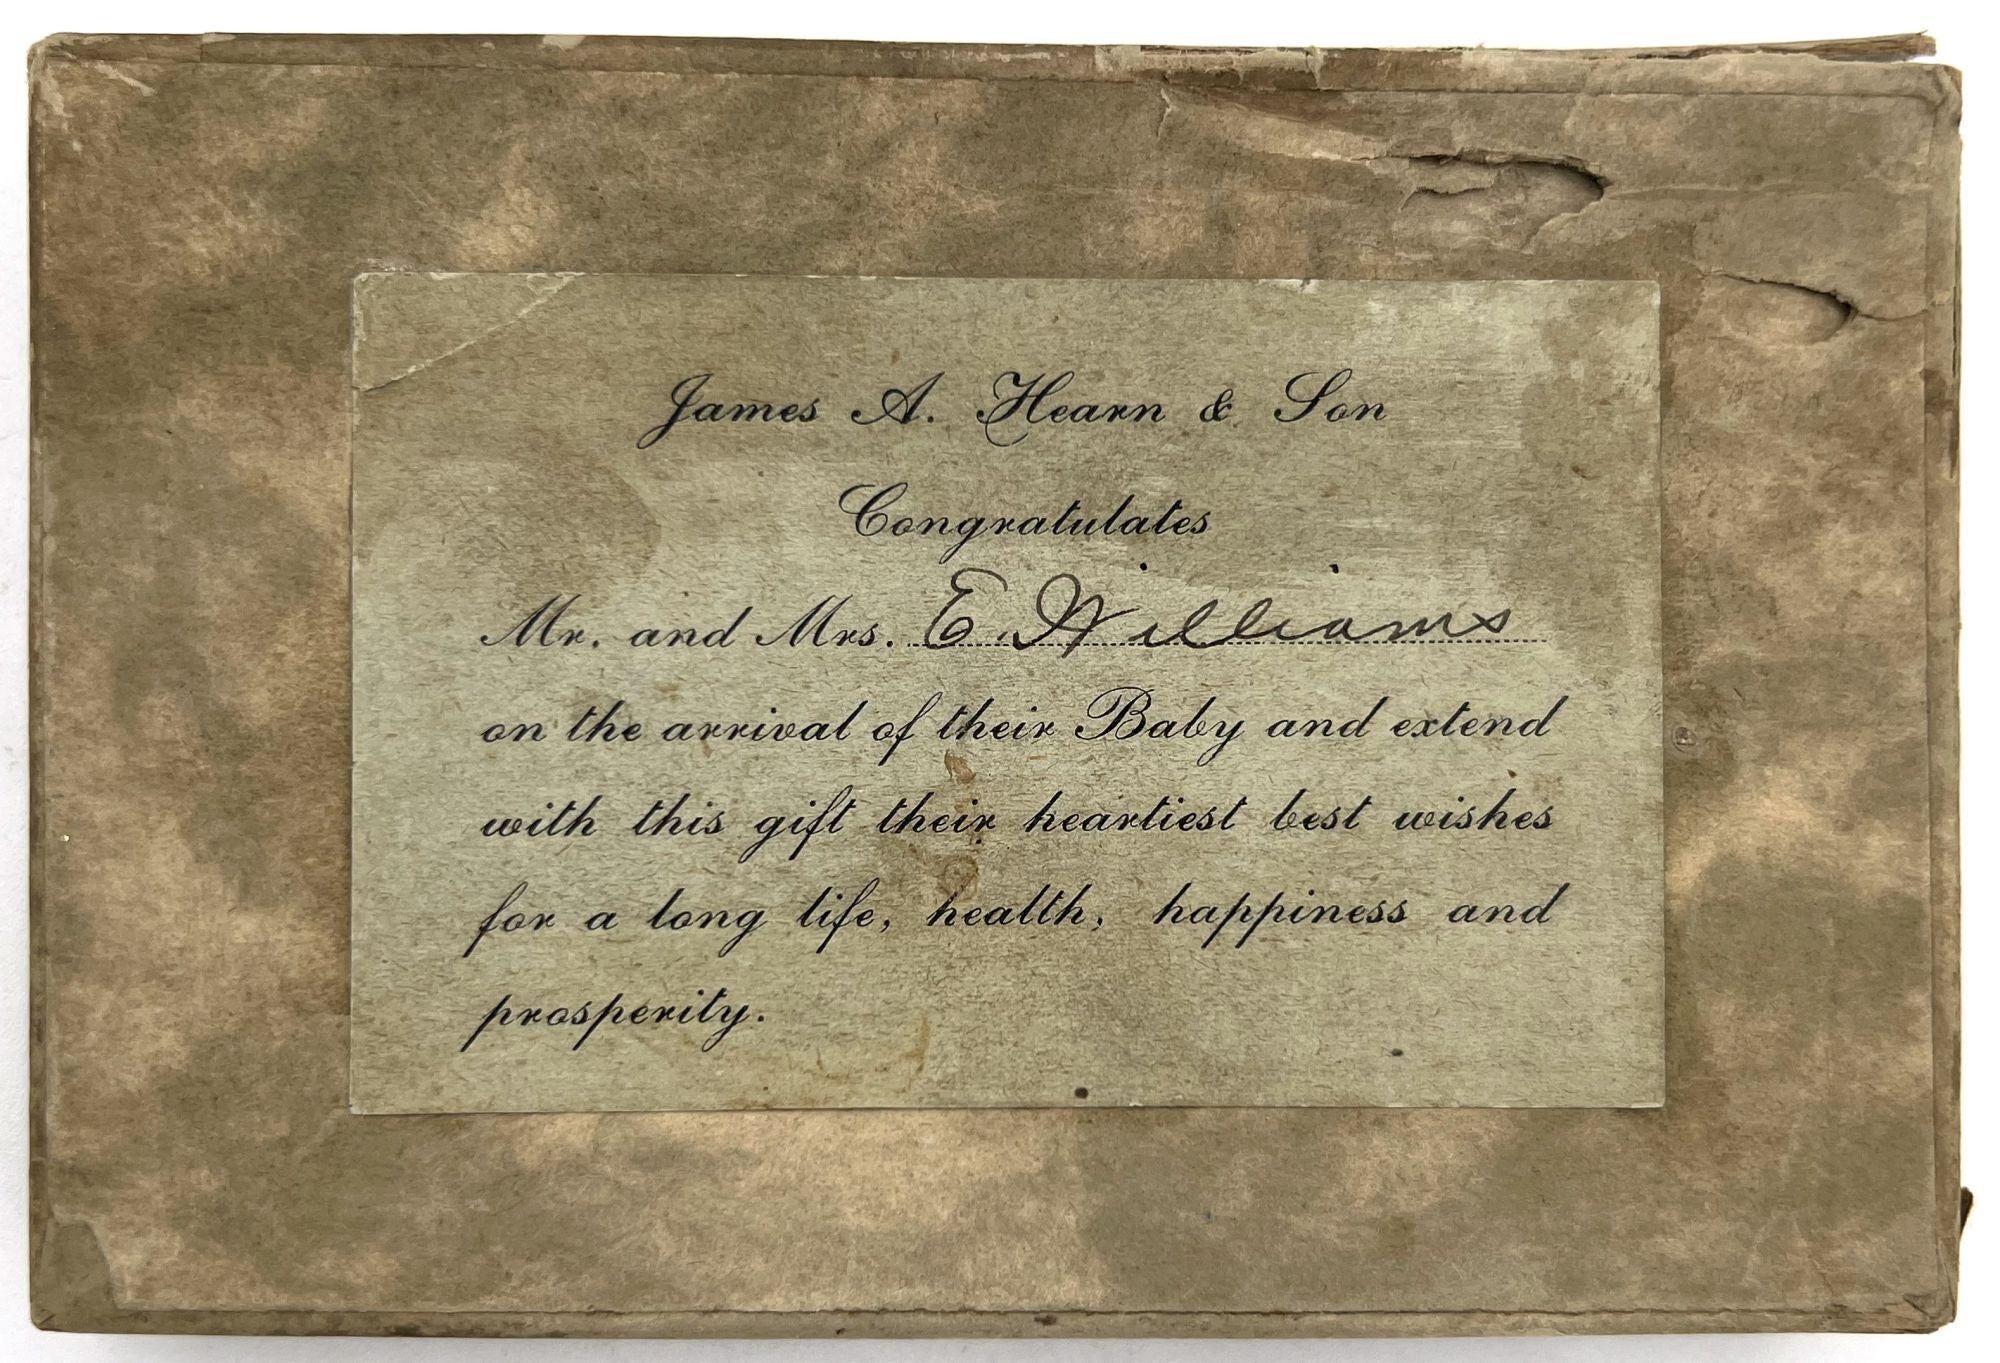 James A. Hearn & Son
Congratulates
Mr. and Mrs. E. Williams
on the arrival of their Baby and extend
with this gift their heartiest best wishes
for a long life, health, happiness and
prosperity.